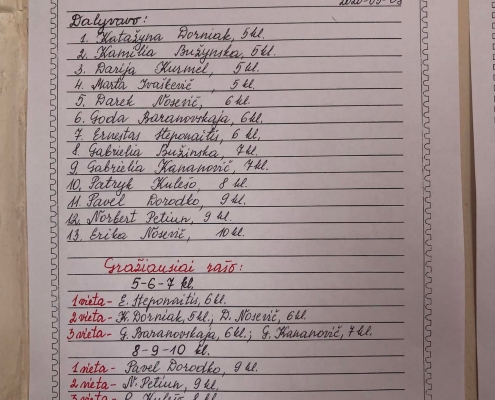 Dalyvavo:
1. Katažyna Dorniak, 5 kl.
2. Kamilia Bužynska, 5 kl.
3. Darija Kurmel, 5 kl.
4. Marta Ivaškevič, 5 kl.
5. Darek Nosevič, 6 kl.
6. Goda Baranovskaja, 6 kl.
7. Ernestas Steponaitis, 6 kl.
8. Gabrielia Bužinska, 7 kl.
9. Gabrielia Kananovič, 7 kl.
10. Patryk Kulešo, 8 kl.
11. Pavel Dorodko, 9 kl.
12. Norbert Petiun, 9 kl.
13. Erika Nosevič, 10 kl.
Gražiausiai rašo:
5-6-7 kl.
1 vieta - E. Steponaitis, 6 kl.
2 vieta - K. Dorniak, 5 kl.; D. Nosevič, 6 kl.
3 vieta - G. Baranovskaja, 6 kl.; G. Kananovič, 7 kl.
8-9-10 kl.
1 vieta - Pavel Dorodko, 9 kl.
2 vieta - N. Petiun, 9 kl.
3 vieta - P. Kulešo, 8 kl.